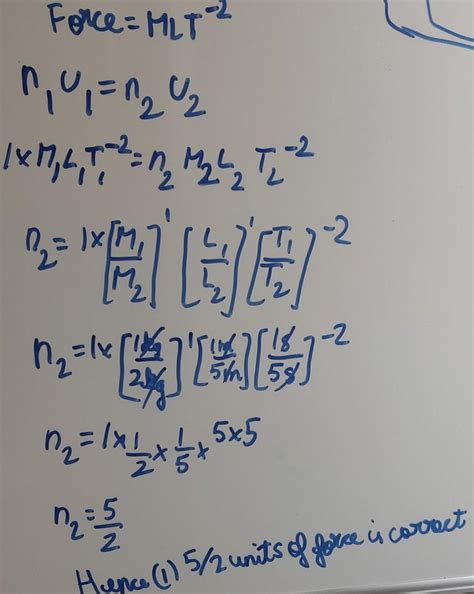 Force = MLT⁻²
n₁U₁ = n₂U₂
1×M₁L₁T₁⁻² = n₂ M₂L₂ T₂⁻²
n₂ = 1×[M₁/M₂]¹ [L₁/L₂]¹ [T₁/T₂]⁻²
n₂ = 1×[1kg/2kg]¹ [1m/5m] [1s/5s]⁻²
n₂ = 1×1/2 × 1/5 × 5×5
n₂ = 5/2
Hence (1) 5/2 units of force is correct